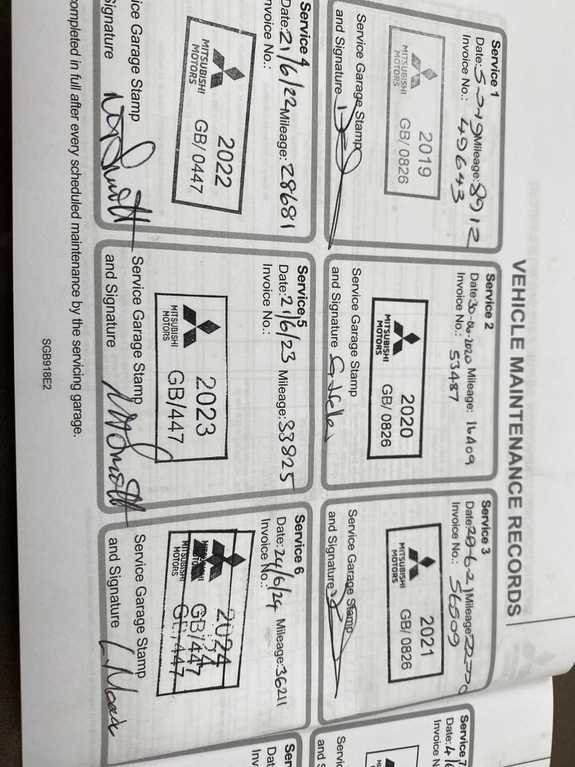 VEHICLE MAINTENANCE RECORDS
Service 1
Mileage: 8912
Invoice No.: 49643
2019
MITSUBISHI
MOTORS
GB/0826
Service Garage Stamp
and Signature
Service 2
Date: 30-06-2020 Mileage: 16409
Invoice No.: 53487
2020
MITSUBISHI
MOTORS
GB/0826
Service Garage Stamp
and Signature
Service 3
Date: 20-6-21 Mileage:
Invoice No.: 56509
2021
MITSUBISHI
MOTORS
GB/0826
Service Garage Stamp
and Signature
Service 4
Date: 21/6/22 Mileage: 28681
Invoice No.:
2022
MITSUBISHI
MOTORS
GB/0447
ice Garage Stamp
Signature
Service 5
Date: 21/6/23 Mileage: 33825
Invoice No.:
2023
MITSUBISHI
MOTORS
GB/447
Service Garage Stamp
and Signature
Service 6
Date: 24/6/24 Mileage: 36211
Invoice No.:
2024
MITSUBISHI
MOTORS
GB/447
GB/447
Service Garage Stamp
and Signature
Service 7
Date: 4/
Invoice N
Servic
and S
Ser
Dat
Inv
completed in full after every scheduled maintenance by the servicing garage.
SGB918E2